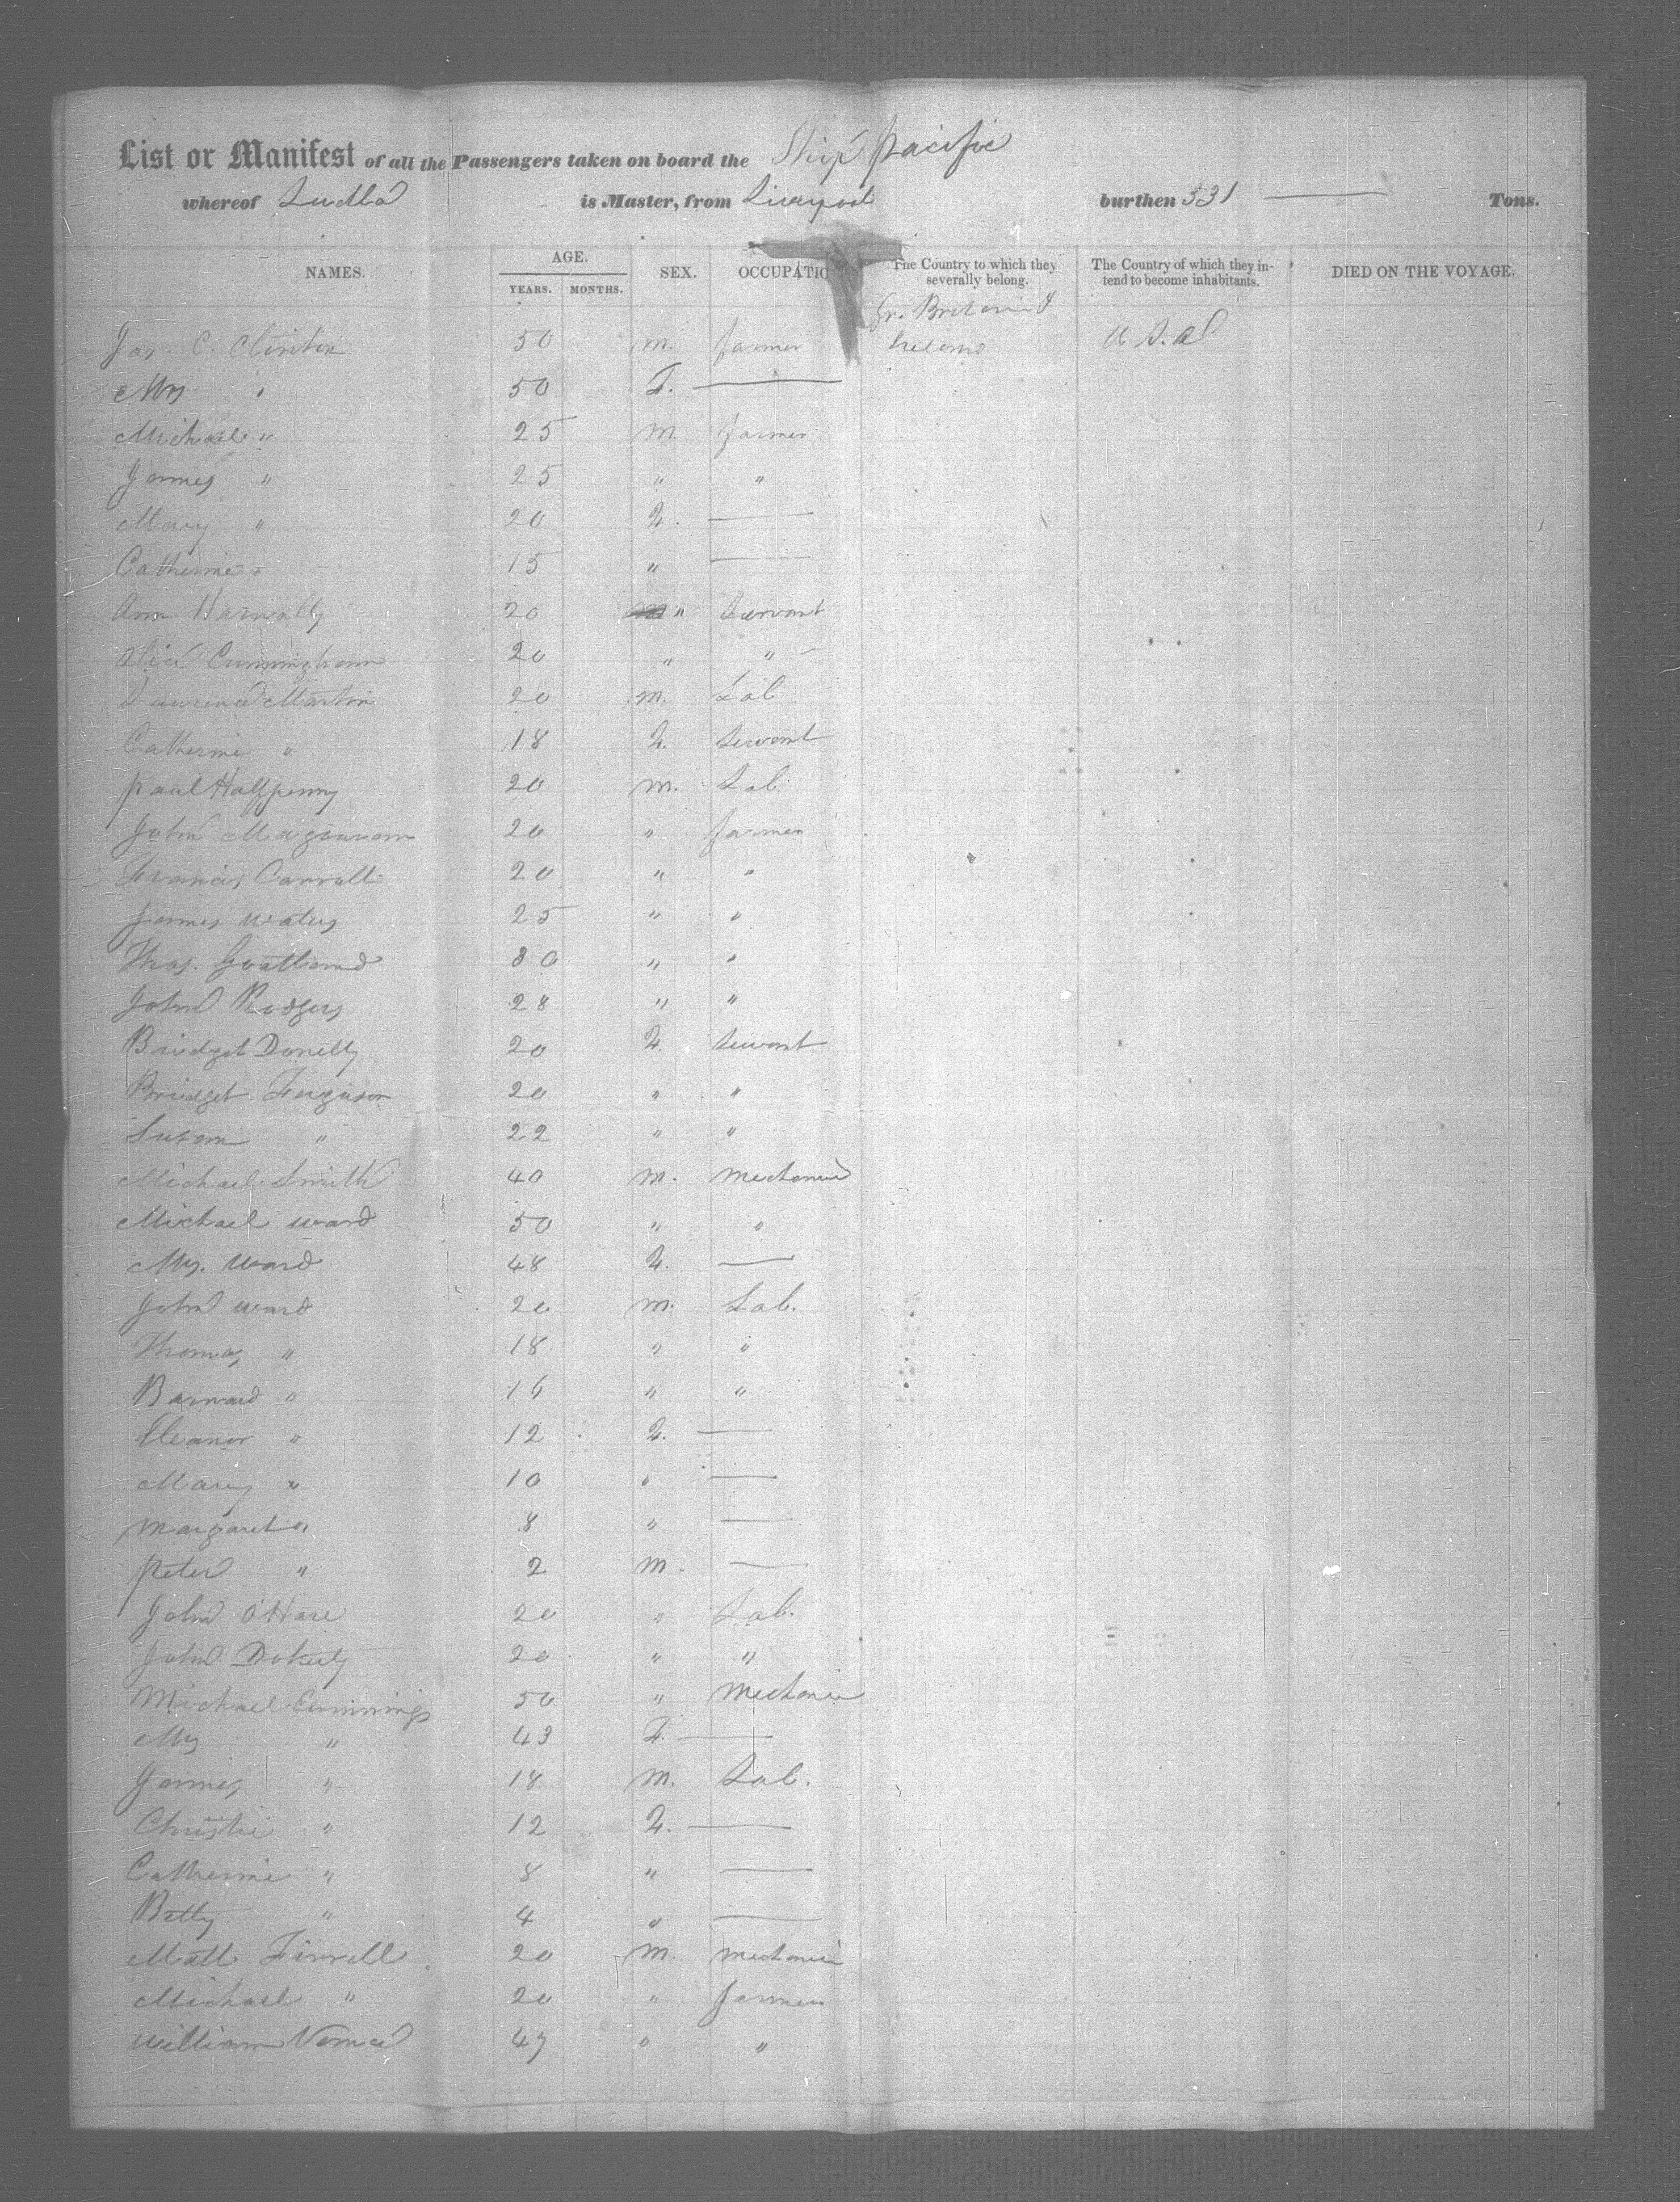 List or Manifest of all the Passengers taken on board the Ship Pacific
whereof is Master, from Liverpool burthen 531 — Tons.
NAMES. AGE. YEARS. MONTHS. SEX. OCCUPATIO The Country to which they severally belong. The Country of which they intend to become inhabitants. DIED ON THE VOYAGE.
Gr. Britain &
Jas. C. Clinton 50 m. farmer Ireland U.S.A
Mrs " 50 F. —
Michael " 25 m. farmer
James " 25 " "
Mary " 20 F. —
Catherine " 15 " —
Ann 20 " Servant
Alice Cunningham 20 " "
Laurence Martin 20 m. Lab
Catherine " 18 F. Servant
Paul Halfpenny 20 m. Lab.
John 20 " farmer
Francis Carroll 20 " "
James Waters 25 " "
Thos. 30 " "
John Rodgers 28 " "
Bridget Donelly 20 F. Servant
Bridget Ferguson 20 " "
Susan " 22 " "
Michael Smith 40 m. Mechanic
Michael Ward 50 " "
Mrs. Ward 48 F. —
John Ward 20 m. Lab.
Thomas " 18 " "
Barnard " 16 " "
Eleanor " 12 F. —
Mary " 10 " —
Margaret " 8 " —
Peter " 2 m. —
John O'Hare 20 " Lab.
John Doherty 20 " "
Michael Cummings 50 " Mechanic
Mrs " 43 F. —
James " 18 m. Lab.
Christie " 12 F. —
Catherine " 8 " —
Betty " 4 " —
Matt Firrell 20 m. mechanic
Michael " 20 " farmer
William 47 " "